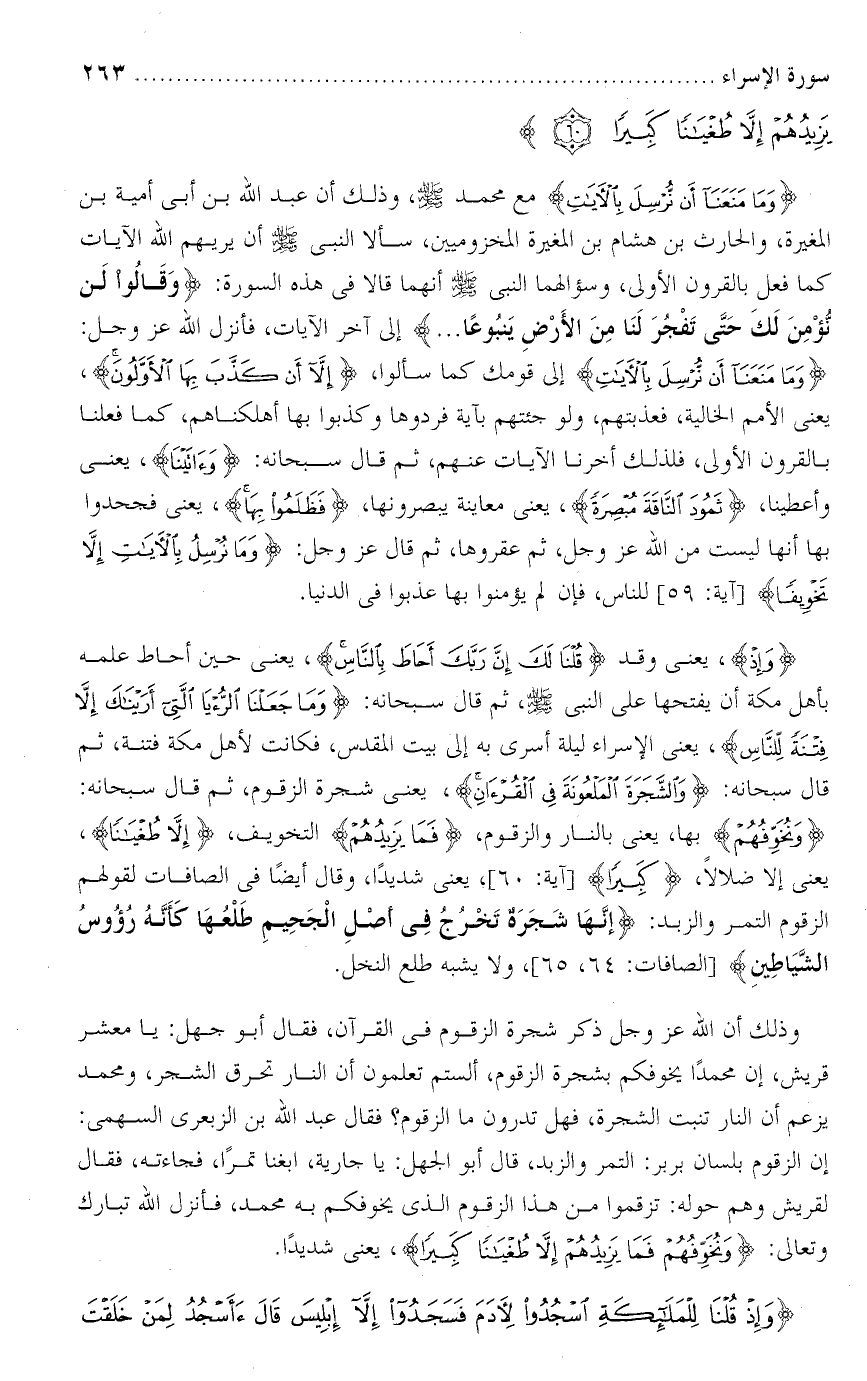 سورة الإسراء ........................................................................ ٢٦٣
يَزِيدُهُمْ إِلَّا طُغْيَٰنًا كَبِيرًا ٦٠ ﴾
﴿ وَمَا مَنَعَنَآ أَن نُّرْسِلَ بِٱلْأَيَٰتِ﴾ مع محمد ﷺ، وذلك أن عبد الله بن أبى أمية بن
المغيرة، والحارث بن هشام بن المغيرة المخزوميين، سألا النبى ﷺ أن يريهم الله الآيات
كما فعل بالقرون الأولى، وسؤالهما النبى ﷺ أنهما قالا فى هذه السورة: ﴿ وَقَالُوا لَن
نُّؤْمِنَ لَكَ حَتَّى تَفْجُرَ لَنَا مِنَ الأَرْضِ يَنبُوعًا...﴾ إلى آخر الآيات، فأنزل الله عز وجل:
﴿ وَمَا مَنَعَنَآ أَن نُّرْسِلَ بِٱلْأَيَٰتِ﴾ إلى قومك كما سألوا، ﴿ إِلَّآ أَن كَذَّبَ بِهَا ٱلْأَوَّلُونَۚ﴾،
يعنى الأمم الخالية، فعذبتهم، ولو جئتهم بآية فردوها وكذبوا بها أهلكناهم، كما فعلنا
بالقرون الأولى، فلذلك أخرنا الآيات عنهم، ثم قال سبحانه: ﴿ وَءَاتَيْنَا﴾، يعنى
وأعطينا، ﴿ ثَمُودَ ٱلنَّاقَةَ مُبْصِرَةً﴾، يعنى معاينة يبصرونها، ﴿ فَظَلَمُوا۟ بِهَاۚ﴾، يعنى فجحدوا
بها أنها ليست من الله عز وجل، ثم عقروها، ثم قال عز وجل: ﴿ وَمَا نُرْسِلُ بِٱلْأَيَٰتِ إِلَّا
تَخْوِيفًا﴾ [آية: ٥٩] للناس، فإن لم يؤمنوا بها عذبوا فى الدنيا.
﴿ وَإِذْ﴾، يعنى وقد ﴿ قُلْنَا لَكَ إِنَّ رَبَّكَ أَحَاطَ بِٱلنَّاسِۚ﴾، يعنى حين أحاط علمه
بأهل مكة أن يفتحها على النبى ﷺ، ثم قال سبحانه: ﴿ وَمَا جَعَلْنَا ٱلرُّءْيَا ٱلَّتِىٓ أَرَيْنَٰكَ إِلَّا
فِتْنَةً لِّلنَّاسِ﴾، يعنى الإسراء ليلة أسرى به إلى بيت المقدس، فكانت لأهل مكة فتنة، ثم
قال سبحانه: ﴿ وَٱلشَّجَرَةَ ٱلْمَلْعُونَةَ فِى ٱلْقُرْءَانِۚ﴾، يعنى شجرة الزقوم، ثم قال سبحانه:
﴿ وَنُخَوِّفُهُمْ﴾ بها، يعنى بالنار والزقوم، ﴿ فَمَا يَزِيدُهُمْ﴾ التخويف، ﴿ إِلَّا طُغْيَٰنًا﴾،
يعنى إلا ضلالاً، ﴿ كَبِيرًا﴾ [آية: ٦٠]، يعنى شديدًا، وقال أيضًا فى الصافات لقولهم
الزقوم التمر والزبد: ﴿إِنَّهَا شَجَرَةٌ تَخْرُجُ فِى أَصْلِ الْجَحِيمِ طَلْعُهَا كَأَنَّهُ رُؤُوسُ
الشَّيَاطِينِ﴾ [الصافات: ٦٤، ٦٥]، ولا يشبه طلع النخل.
وذلك أن الله عز وجل ذكر شجرة الزقوم فى القرآن، فقال أبو جهل: يا معشر
قريش، إن محمدًا يخوفكم بشجرة الزقوم، ألستم تعلمون أن النار تحرق الشجر، ومحمد
يزعم أن النار تنبت الشجرة، فهل تدرون ما الزقوم؟ فقال عبد الله بن الزبعرى السهمى:
إن الزقوم بلسان بربر: التمر والزبد، قال أبو الجهل: يا جارية، ابغنا تمرًا، فجاءته، فقال
لقريش وهم حوله: تزقموا من هذا الزقوم الذى يخوفكم به محمد، فأنزل الله تبارك
وتعالى: ﴿ وَنُخَوِّفُهُمْ فَمَا يَزِيدُهُمْ إِلَّا طُغْيَٰنًا كَبِيرًا﴾، يعنى شديدًا.
﴿وَإِذْ قُلْنَا لِلْمَلَٰٓئِكَةِ ٱسْجُدُوا۟ لِأَدَمَ فَسَجَدُوٓا۟ إِلَّآ إِبْلِيسَ قَالَ ءَأَسْجُدُ لِمَنْ خَلَقْتَ